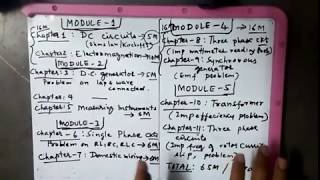 16M
MODULE-1
Chapter 1: DC circuits → 5M
(ohms law/Kirchoff)
Chapter 2: Electromagnetism - 10M
MODULE-2
Chapter: 3: D.C. generator → 5M
Problem on
lap & wave connected.
Chapter: 4
Chapter: 5: Measuring Instruments → 6M
MODULE-3
Chapter - 6: Single Phase ckts
Problem on RL, RC, RLC → 6M
Chapter - 7: Domestic wiring
16M
MODULE-4 → 16M
Chapter - 8: Three phase ckts
(Imp wattmeter reading
Chapter - 9: Synchronous
generator
(Emf problem)
MODULE-5
Chapter - 10: Transformer
(Imp efficiency problem)
Chapter - 11: Three phase
circuits
(Imp freq of rotor current
slip, problem
TOTAL: 65M